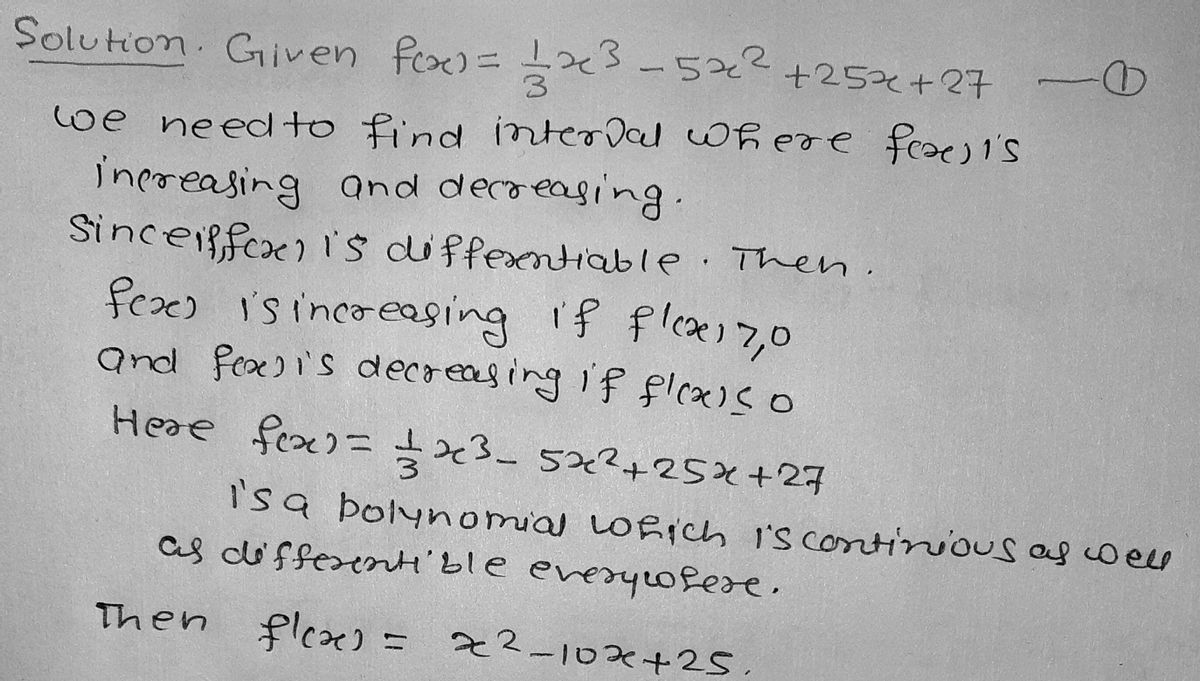 Solution. Given f(x) = 1/3 x³ - 5x² + 25x + 27 —①
we need to find interval where f(x) is
increasing and decreasing.
Since if, f(x) is differentiable. Then.
f(x) is increasing if f'(x) ≥ 0
and f(x) is decreasing if f'(x) ≤ 0
Here f(x) = 1/3 x³ - 5x² + 25x + 27
is a polynomial which is continious as well
as differentible everywhere.
Then f'(x) = x² - 10x + 25.